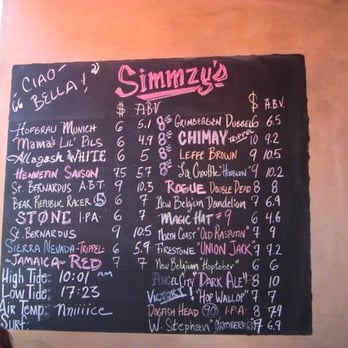 CIAO-
BELLA!
Simmzy's
$ A.B.V.
HOFBRAU MUNICH 6 5.1
Mama's Lil' PILS 6 4.9
Allagash WHITE 6 5
HENNEPIN SAISON 7.5 5.7
ST. BERNARDUS A.B.T. 9 10.3
BEAR REPUBLIC RACER 5 6 7
STONE I.P.A. 6 7
ST. BERNARDUS 9 10.5
SIERRA NEVADA - TRIPPEL 6 5.9
~JAMAICA~ RED 7 7
High Tide: 10:01 am
Low Tide: 17:23
Air Temp: Nniiiice
Surf:
$ A.B.V.
8oz GRIMBERGEN DUBBEL 6 6.5
8oz CHIMAY TRIPPEL 10 9.2
8oz LEFFE BROWN 9 10.5
8oz La Chouffe "HOUBLON" 9 10.2
ROGUE DOUBLE DEAD 8 8
New Belgian Dandelion 7 6.9
MAGIC HAT #9 6 4.6
NORTH COAST "OLD RASPUTIN" 7 9
FIRESTONE "UNION JACK" 7.2
New Belgium "Hoptober" 6 6
ANGEL CITY "DARK ALE" 8 10
VICTORY! "HOP WALLOP" 7 7
DOGFISH HEAD 90 I.P.A. 8 7.9
W. Stephan 7 6.9